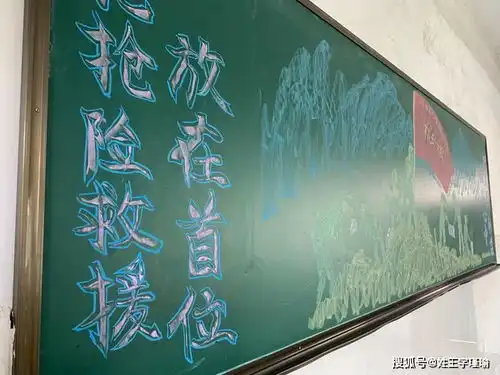 抢险救援
放在首位
搜狐号@姓王字瑾瑜